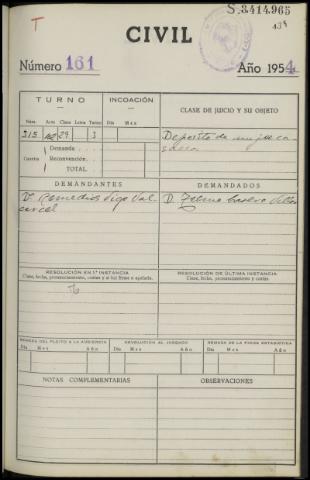 S.3414.965
T
CIVIL
Número 161
Año 1954
TURNO
INCOACIÓN
CLASE DE JUICIO Y SU OBJETO
Núm. Año Clase Letra Turno
Día Mes
315 29 3
Deposito de mujer ca-
sada
Demanda
Cuantía Reconvención
TOTAL
DEMANDANTES
DEMANDADOS
Dª Remedios Vigo Val-
carcel
D.
RESOLUCIÓN EN 1ª INSTANCIA
Clase, fecha, pronunciamiento, costas y si fué firme o apelada.
RESOLUCIÓN DE ÚLTIMA INSTANCIA
Clase, fecha, pronunciamiento y costas.
REMESA DEL PLEITO A LA AUDIENCIA
DEVOLUCIÓN AL JUZGADO
REMESA DE LA FICHA ESTADÍSTICA
Día Mes Año
Día Mes Año
Día Mes Año
NOTAS COMPLEMENTARIAS
OBSERVACIONES